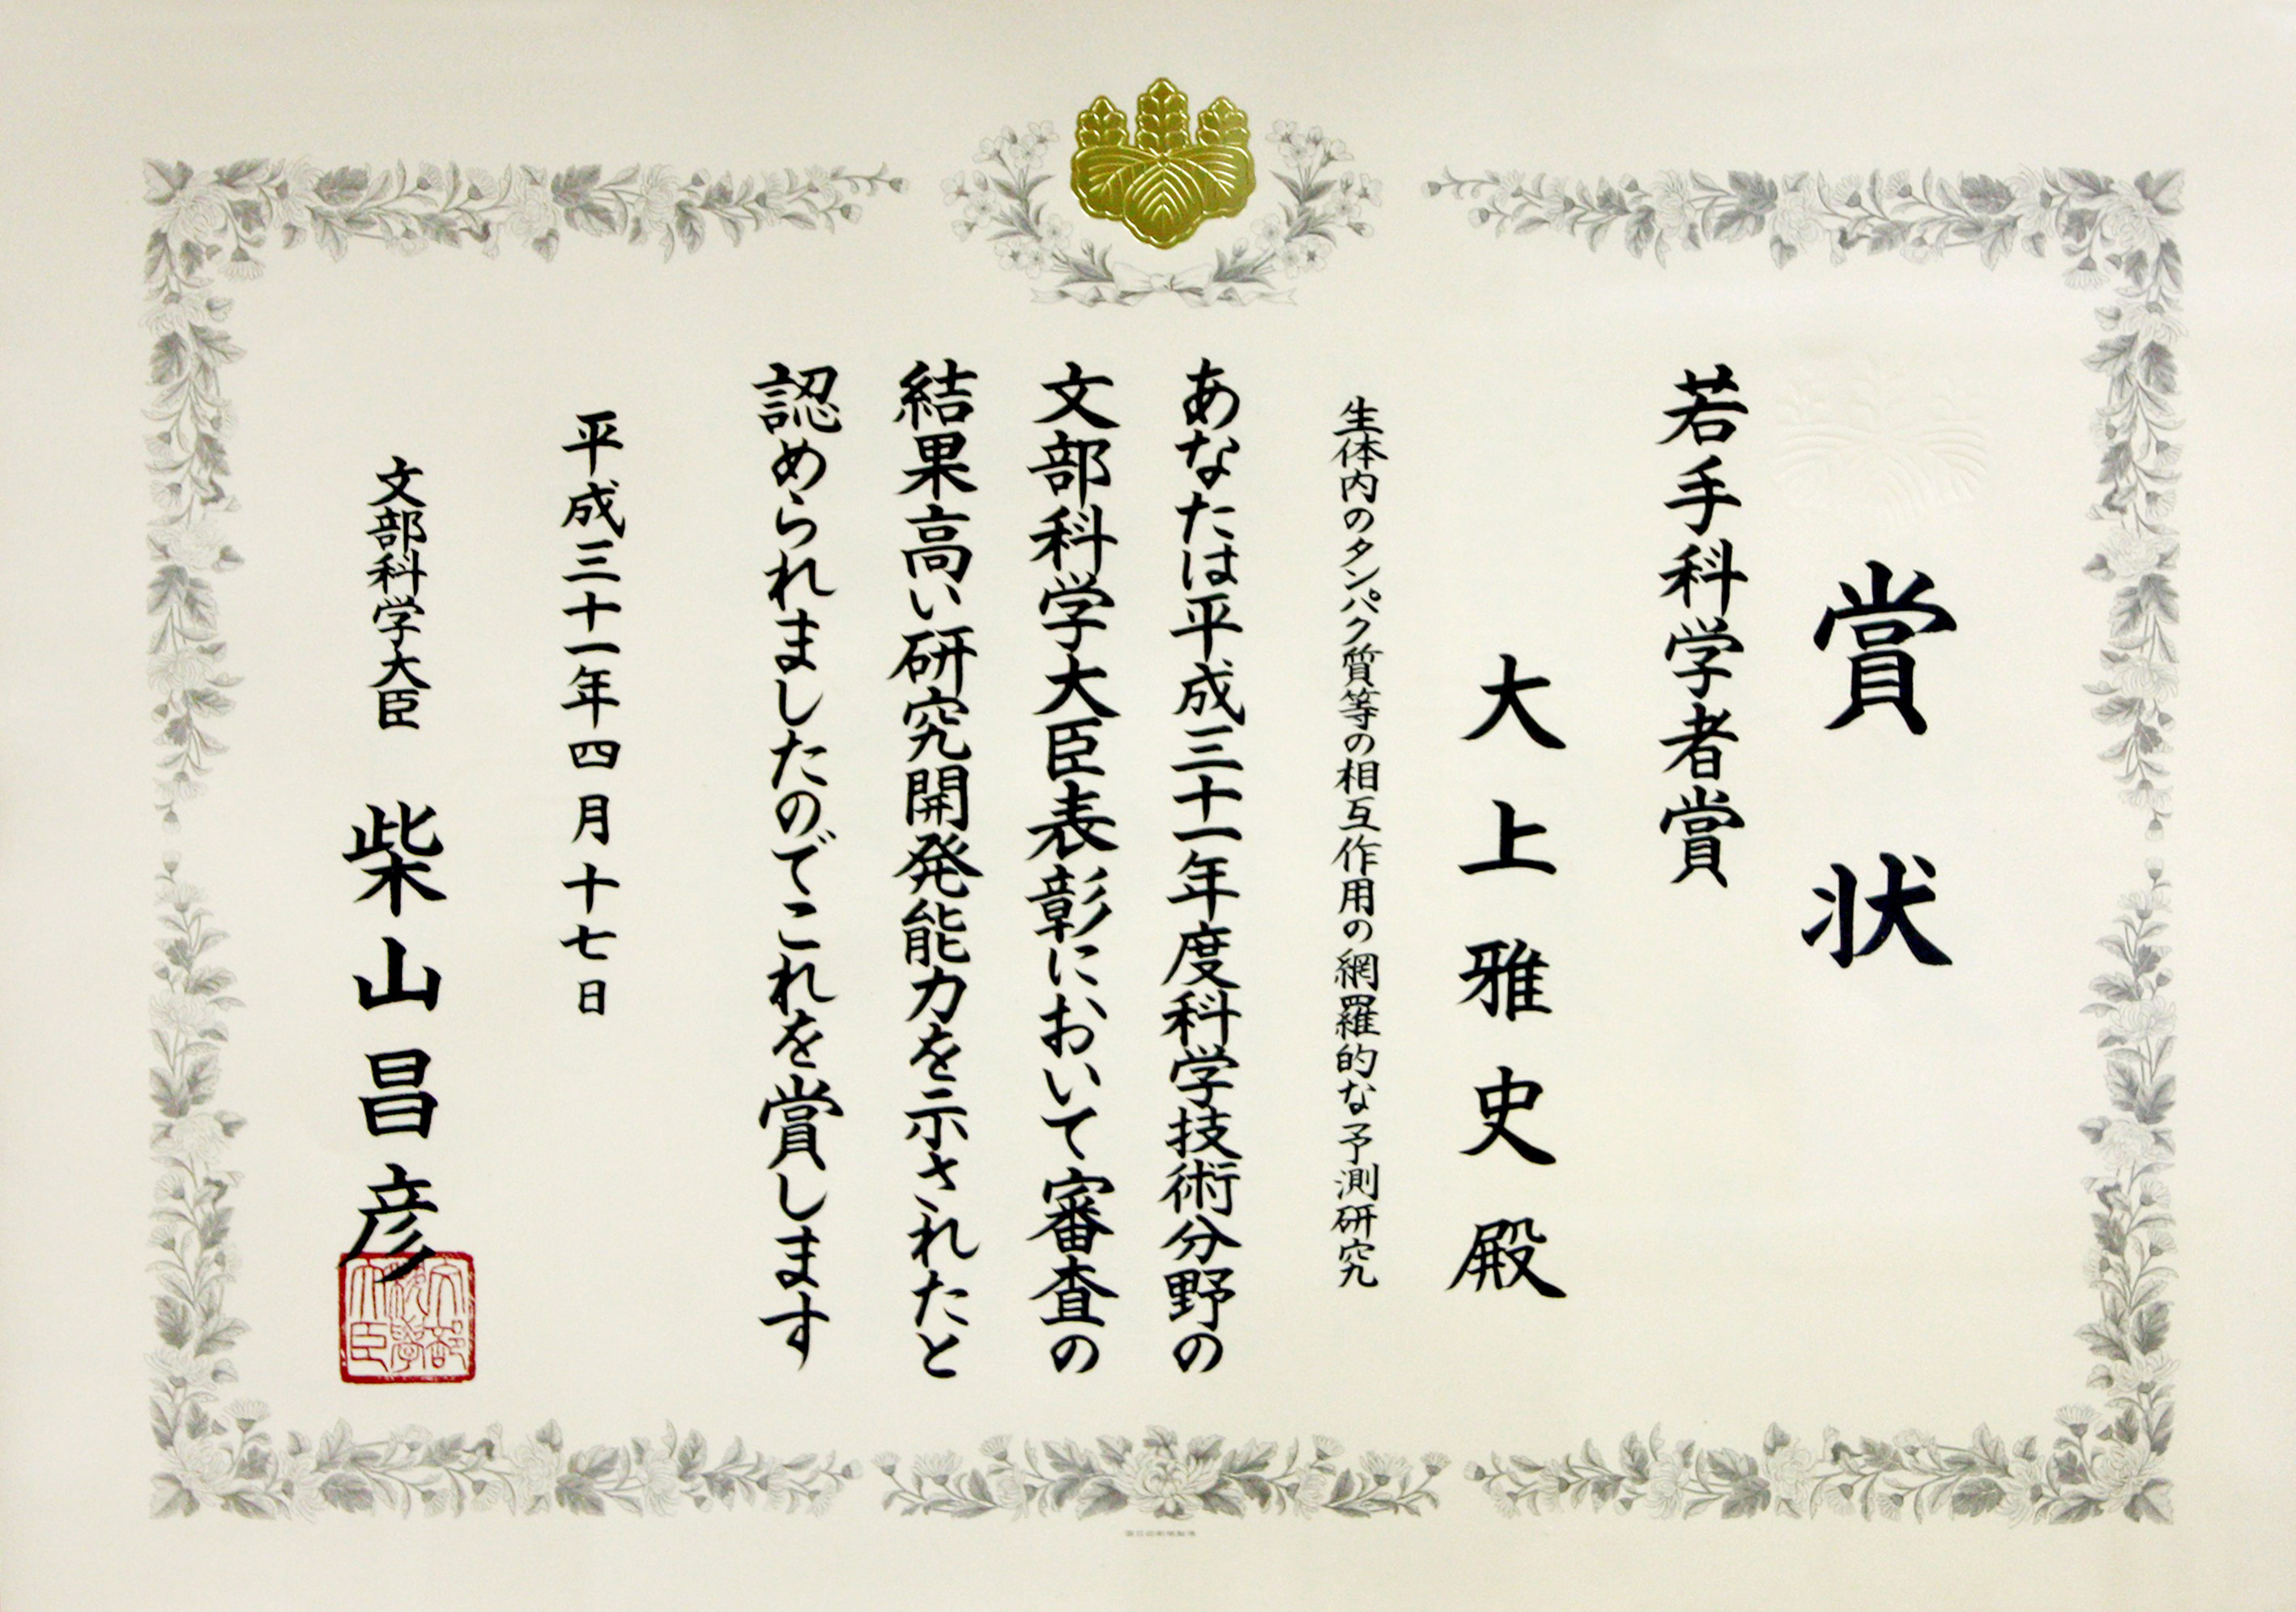 賞状
若手科学者賞
大上雅史殿
生体内のタンパク質等の相互作用の網羅的な予測研究
あなたは平成三十一年度科学技術分野の
文部科学大臣表彰において審査の
結果高い研究開発能力を示されたと
認められましたのでこれを賞します
平成三十一年四月十七日
文部科学大臣 柴山昌彦